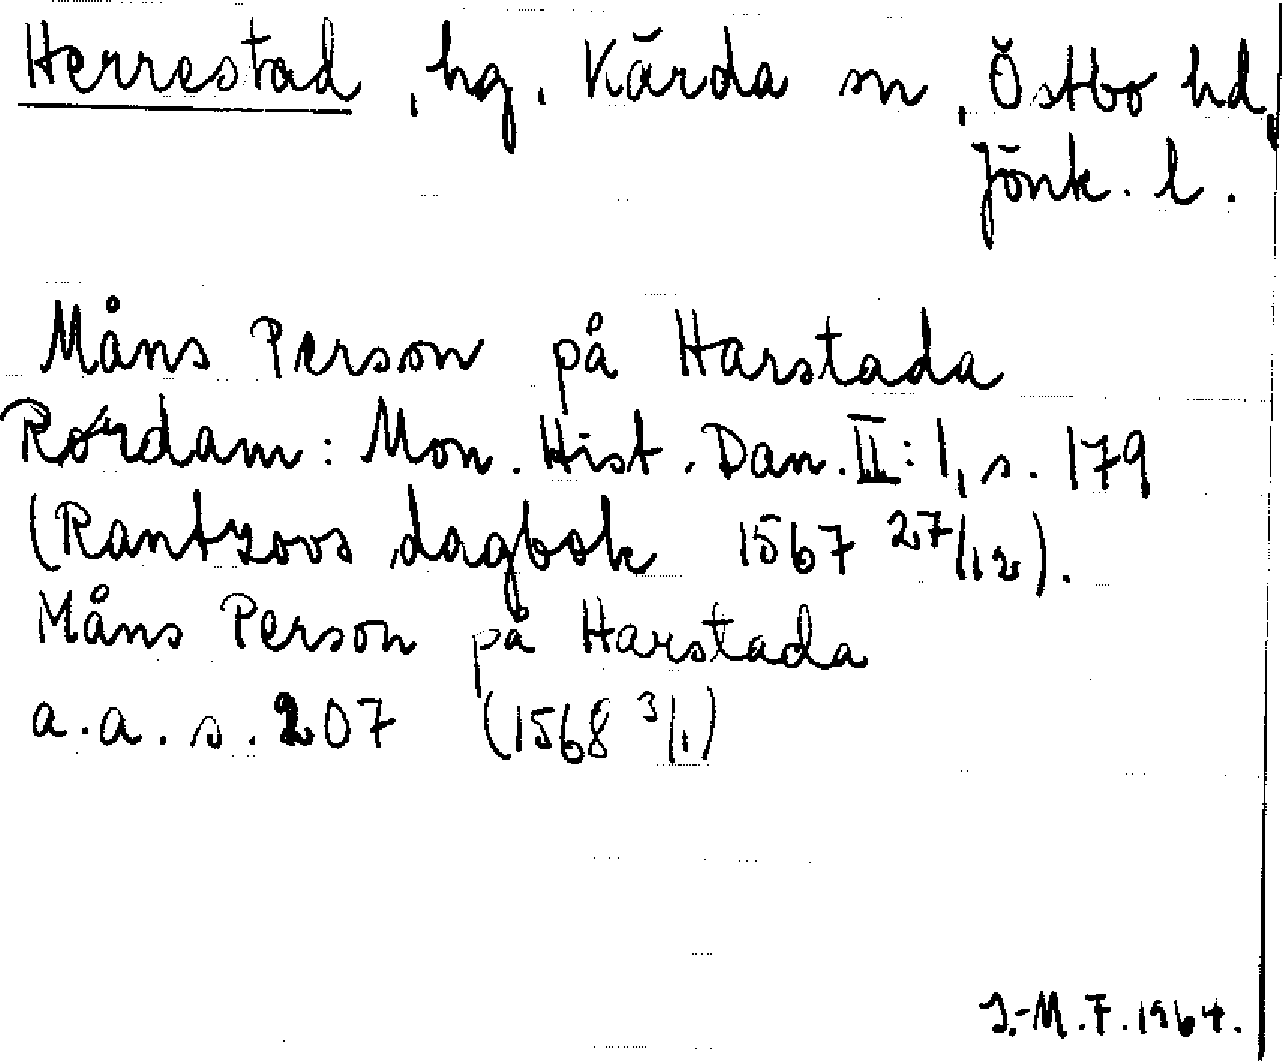 Herrestad, hg, Kärda sn, Östbo hd,
Jönk. l.
Måns Person på Harstada
Rørdam: Mon. Hist. Dan. II: 1, s. 179
(Rantzovs dagbok 1567 27/12).
Måns Person på Harstada
a.a. s. 207 (1568 3/1)
I.-M. F. 1964.